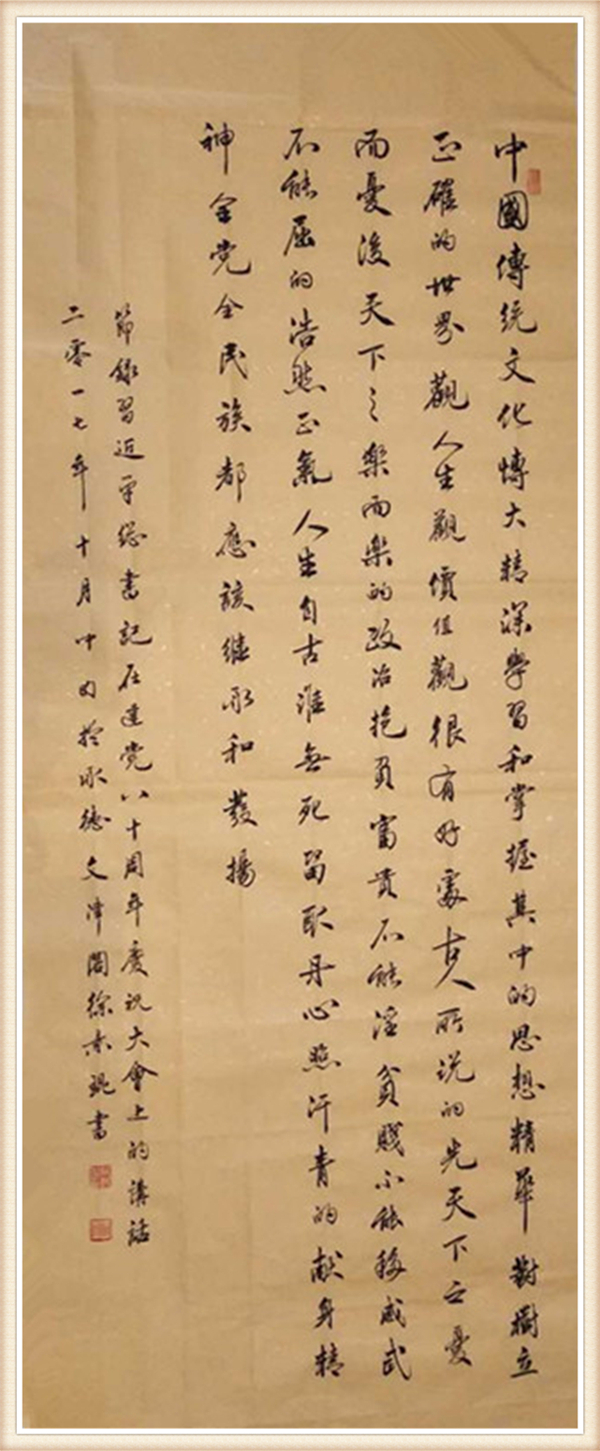 中國傳統文化博大精深學習和掌握其中的思想精華對樹立
正確的世界觀人生觀價值觀很有好處古人所説的先天下之憂
而憂後天下之樂而樂的政治抱負富貴不能淫貧賤不能移威武
不能屈的浩然正氣人生自古誰無死留取丹心照汗青的献身精
神全党全民族都應該继承和發揚
節錄習近平總書記在建党八十周年慶祝大會上的講話
二零一七年十月中旬於承德文津閣徐赤琥書